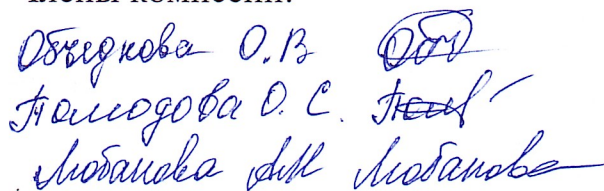 члены комиссии:
Объедкова О.В
Помогова О.С.
Лобанова АМ Лобанова